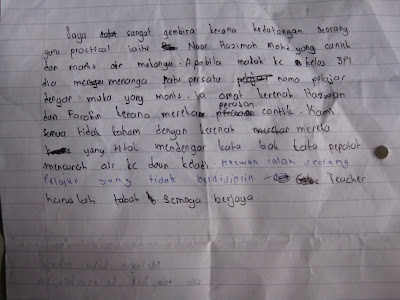 Saya sangat gembira kerana kedatangan seorang
guru practical iaitu Noor Hazimah Mohd yang cantik
dan manis air mukanya. Apabila masuk ke kelas 3P1
dia menanya satu persatu nama pelajar
dengan muka yang manis. Ia amat kerenah Hazwan
dan Farahin kerana mereka perasan cantik. Kami
semua tidak faham dengan kerenah mereka
yang tidak mendengar kata bak kata pepatah
mencurah air ke daun keladi. Hazwan ialah seorang
Pelajar yang tidak berdisiplin Teacher
haruslah tabah & semoga berjaya